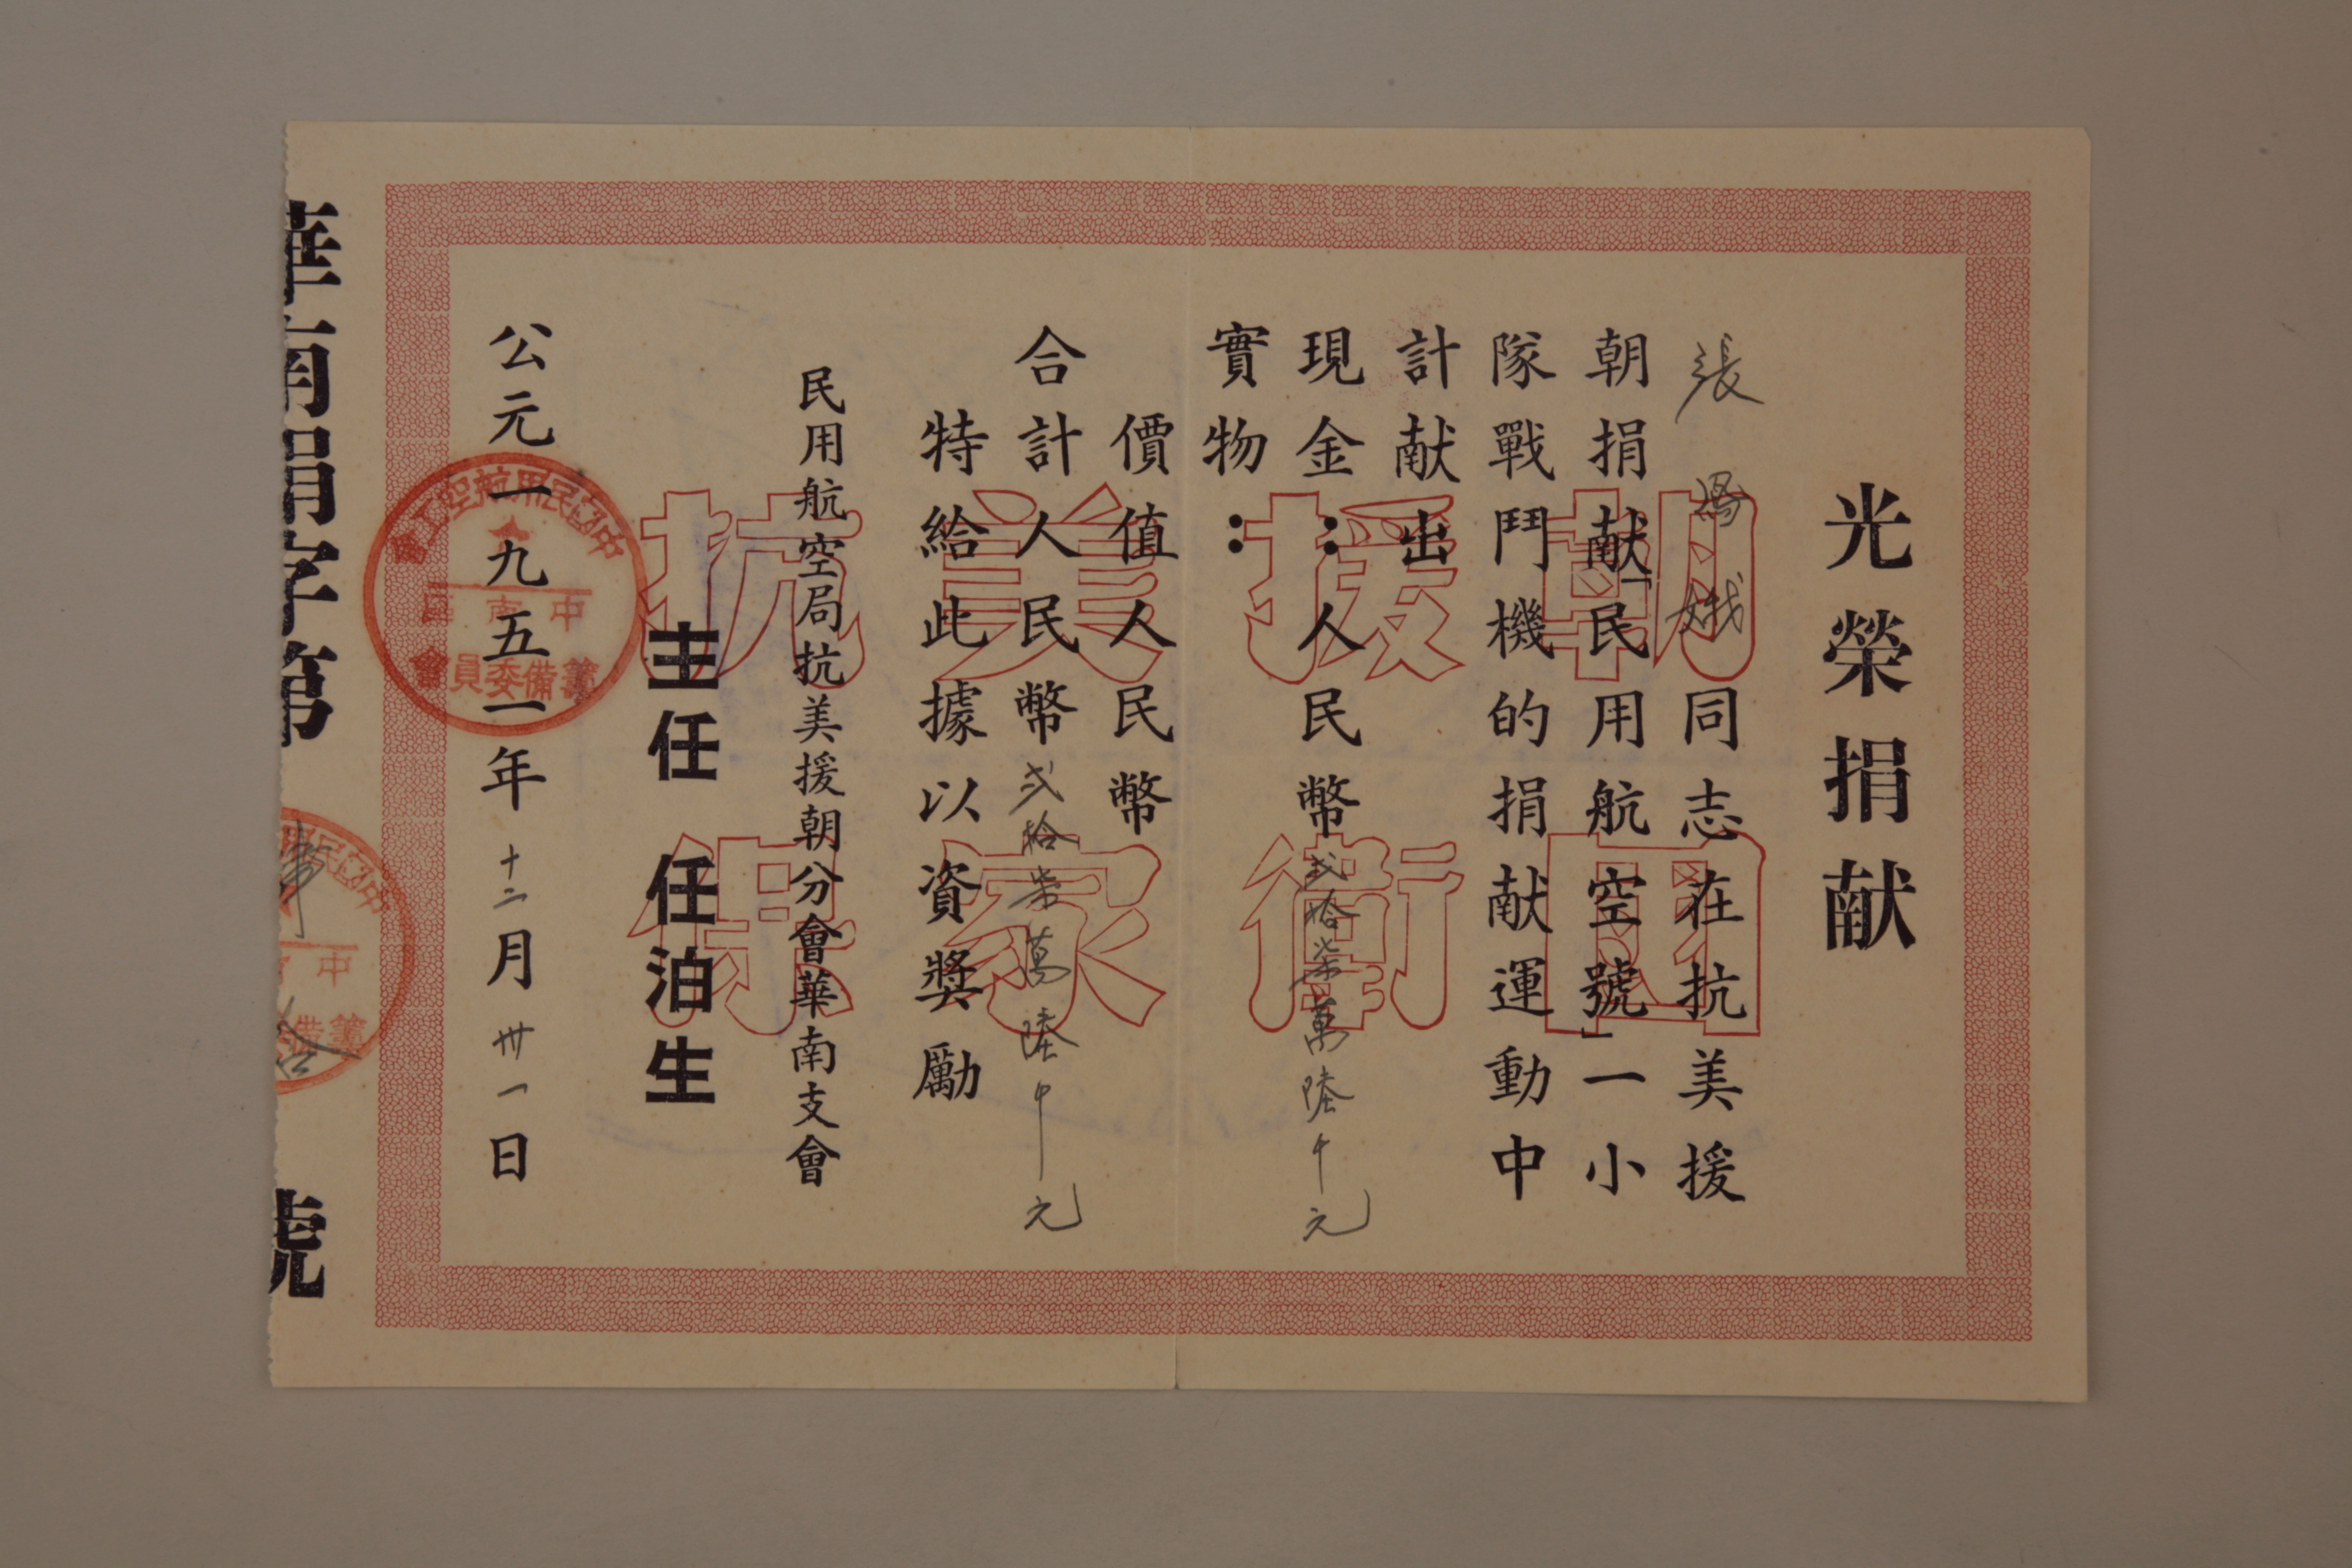 光榮捐献
張馮娥同志在抗美援
朝捐献「民用航空號」一小
隊戰鬥機的捐献運動中
計献出
現金：人民幣弍拾柒萬陸千元
實物：
價值人民幣
合計人民幣弍拾柒萬陸千元
特給此據以資獎勵
民用航空局抗美援朝分會華南支會
主任 任泊生
公元一九五一年十二月卅一日
華南捐字第 號
抗美援朝
保家衛國
中國民用航空工會
中南區
籌備委員會